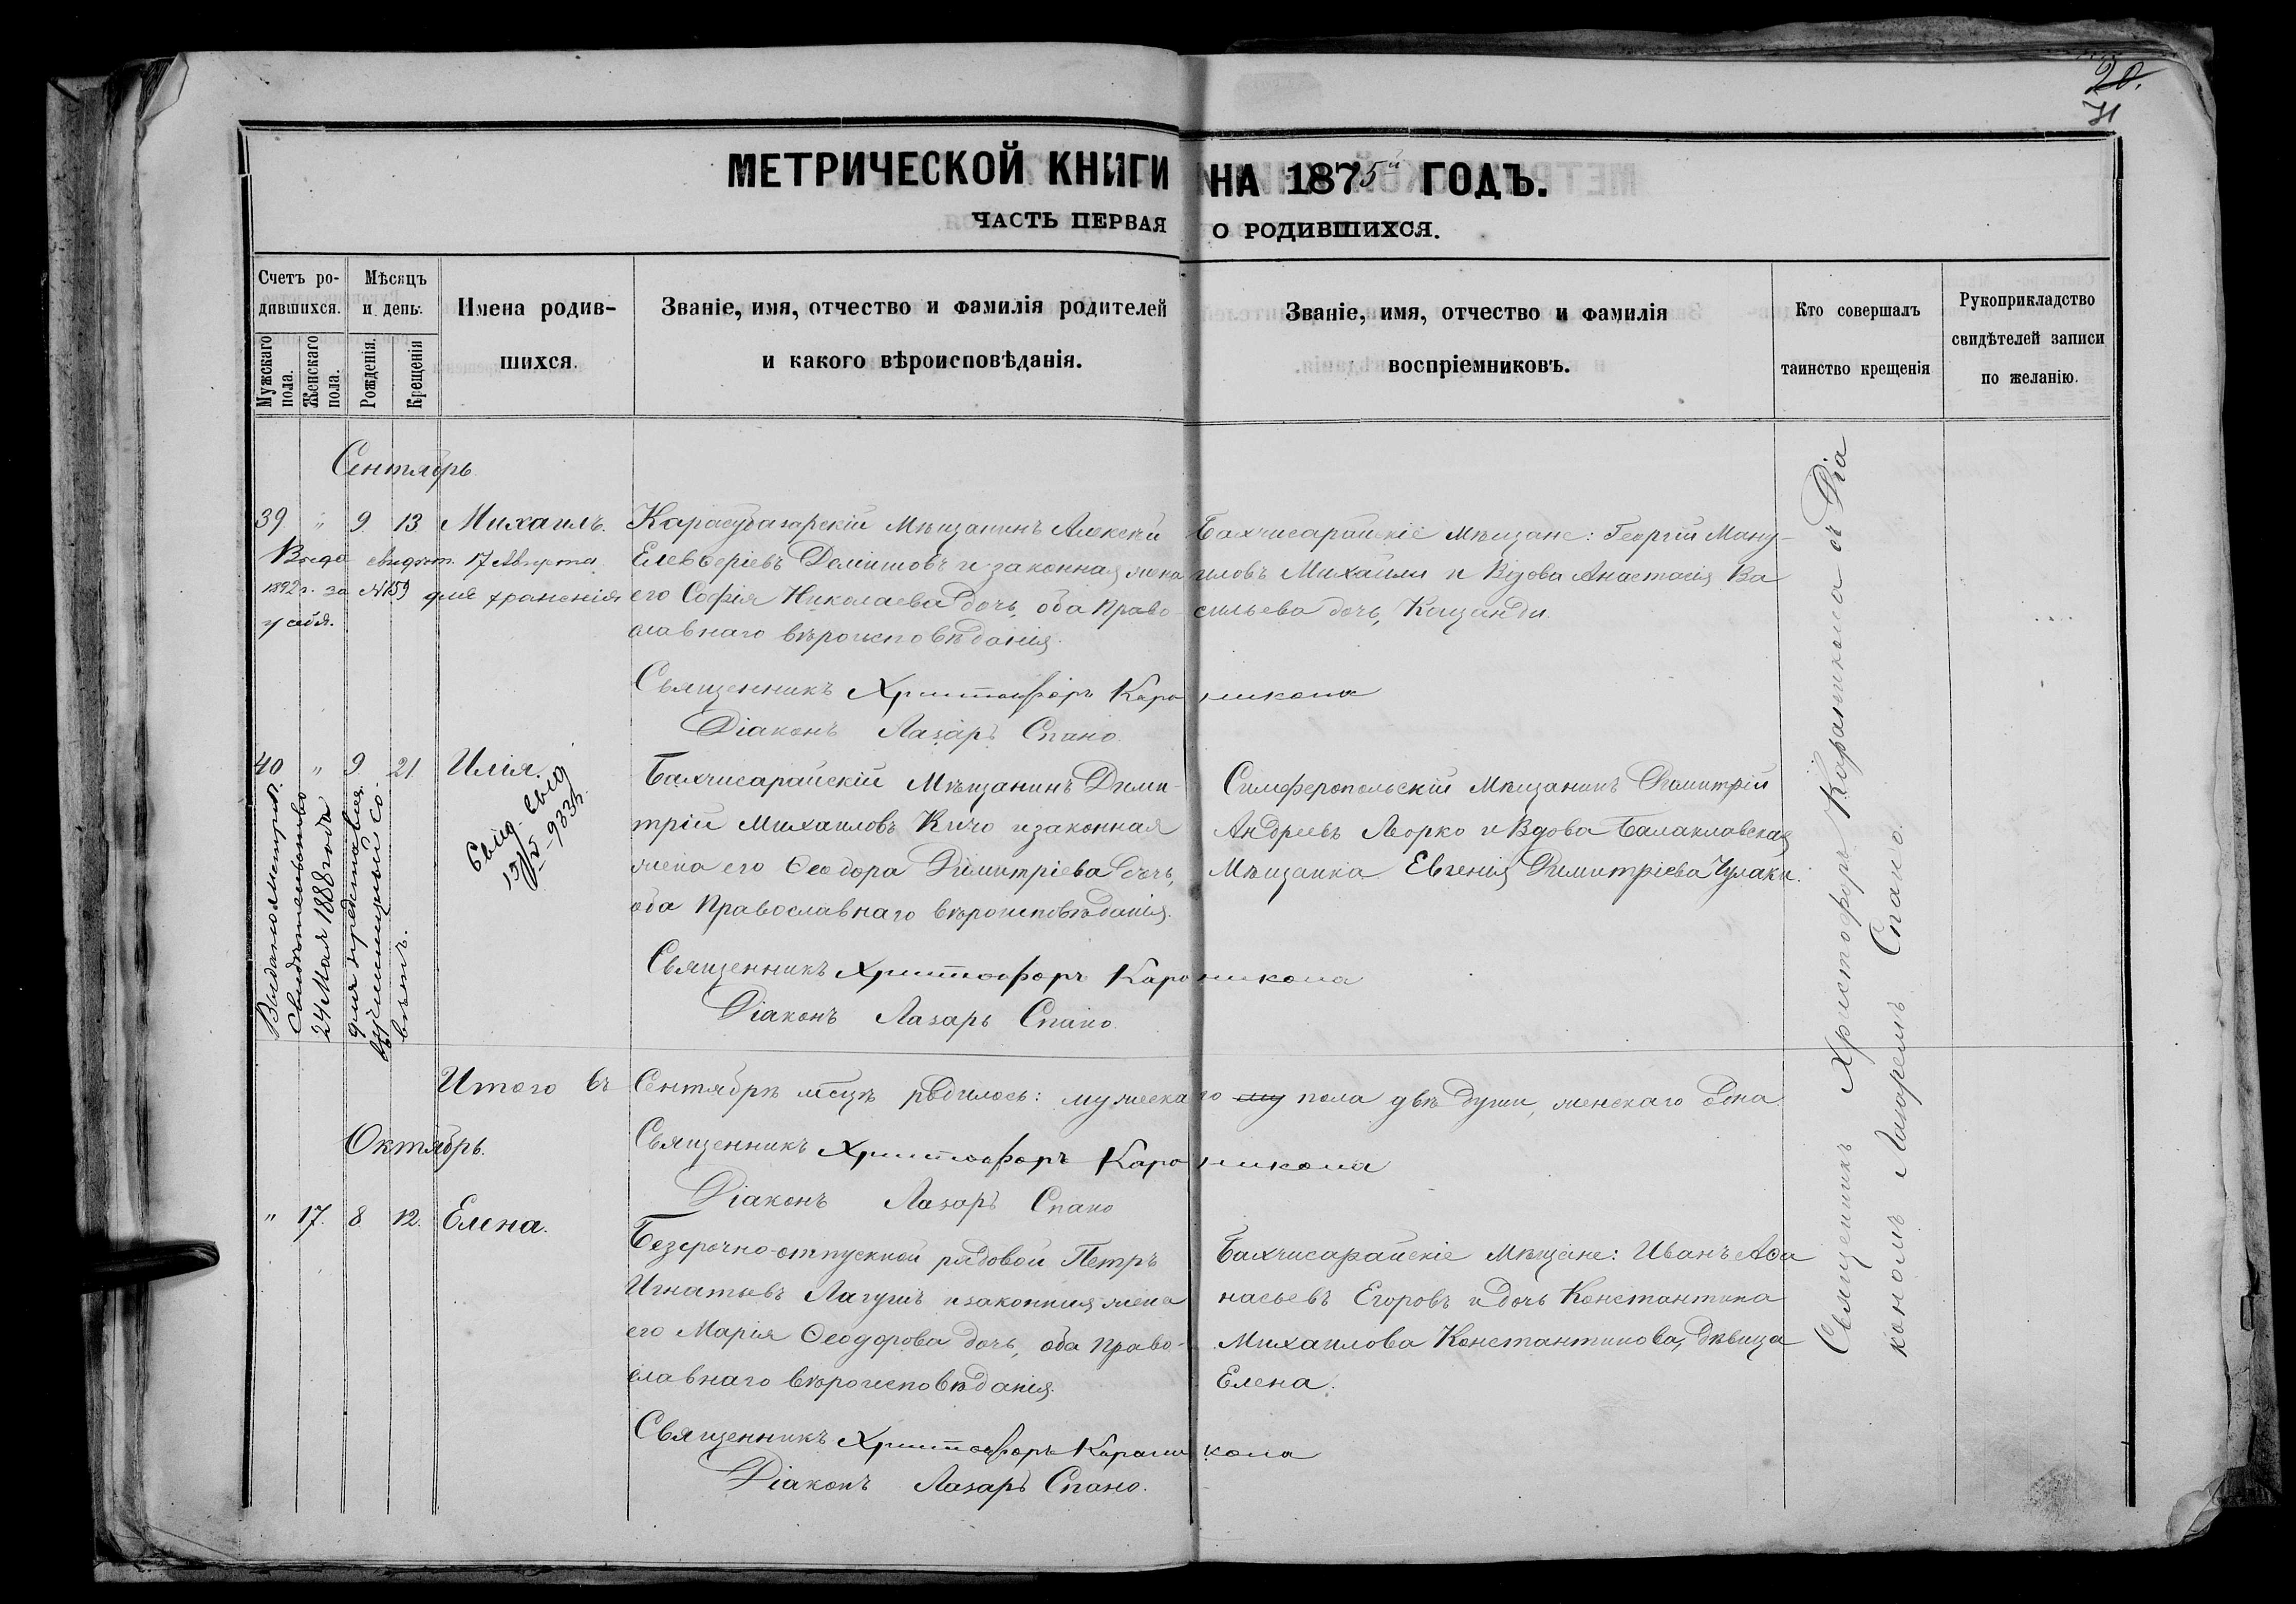 20.
71
МЕТРИЧЕСКОЙ КНИГИ НА 1875й ГОДЪ.
ЧАСТЬ ПЕРВАЯ О РОДИВШИХСЯ.
Счетъ ро-
дившихся.
Мужскаго пола.
Женскаго пола.
Мѣсяцъ
и день.
Рожденія.
Крещенія
Имена родив-
шихся.
Званіе, имя, отчество и фамилія родителей
и какого вѣроисповѣданія.
Званіе, имя, отчество и фамилія
воспріемниковъ.
Кто совершалъ
таинство крещенія
Рукоприкладство
свидѣтелей записи
по желанію.
Сентябрь
39 " 9 13 Михаилъ.
Выда свидѣт. 17 Августа
1892 г. за №159 для храненія
у себя.
Карасубазарскій Мѣщанинъ Алексѣй
Елевѳеріевъ Демишовъ и законная жена
его Софія Николаева дочь, оба Право-
славнаго вѣроисповѣданія.
Бахчисарайскіе Мѣщане: Георгій Ману-
иловъ Михайли и Вдова Анастасія Ва
сильева дочь,
Священникъ Христофоръ Караникола
Діаконъ Лазарь Спано.
40 " 9 21 Илія.
Выдано метрич.
Свидѣтельство
24 Мая 1888 года
для представленія
въ училищный со-
вѣтъ.
Бахчисарайскій Мѣщанинъ Дими-
трій Михаиловъ Кичо и законная
жена его Ѳеодора Димитріева дочь,
оба Православнаго вѣроисповѣданія.
Симферопольскій Мѣщанинъ Димитрій
Андреевъ Яворко и Вдова Балаклавская
Мѣщанка Евгенія Димитріева Чулаки.
Священникъ Христофоръ Караникола
Діаконъ Лазарь Спано.
Итого въ Сентябрѣ мѣсяцѣ родилось: мужескаго пола двѣ души, женскаго одна
Священникъ Христофоръ Караникола
Діаконъ Лазарь Спано
Октябрь.
" 17. 8 12. Елена.
Безсрочно-отпускной рядовой Петръ
Игнатьевъ Лагушъ и законная жена
его Марія Ѳеодорова дочь, оба Право-
славнаго вѣроисповѣданія.
Бахчисарайскіе Мѣщане: Иванъ Аѳа
насьевъ Егоровъ и дочь Константина
Михаилова Константинова, дѣвица
Елена.
Священникъ Христофоръ Караникола
Діаконъ Лазарь Спано.
Священникъ Христофоръ Караникола съ Діа
кономъ Лазаремъ Спано.